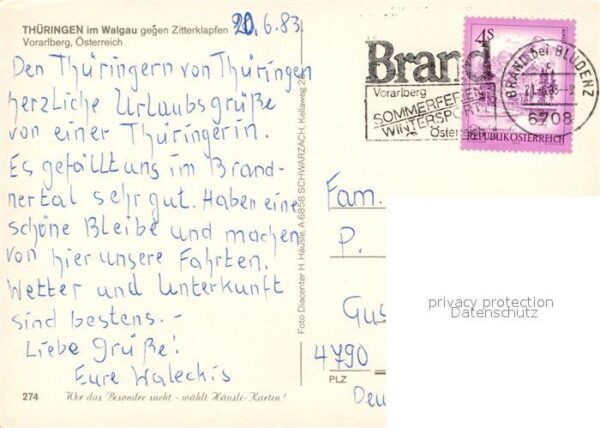 THÜRINGEN im Walgau gegen Zitterklapfen
Vorarlberg, Österreich
20.6.83
Den Thüringern von Thüringen
herzliche Urlaubsgrüße
von einer Thüringerin.
Es gefällt uns im Brand-
nertal sehr gut. Haben eine
schöne Bleibe und machen
von hier unsere Fahrten.
Wetter und Unterkunft
sind bestens. -
Liebe Grüße!
Eure Waleckis
274
Wer das Besondre sucht - wählt Häusle-Karten!
Foto Diacenter H. Häusle, A-6858 SCHWARZACH, Kellaweg
Brand
Vorarlberg
SOMMERFERIEN
WINTERSPORT
Öster
4S
REPUBLIK ÖSTERREICH
BRAND bei BLUDENZ
6708
Fam.
P.
Gus
4790
PLZ
Deu
privacy protection
Datenschutz